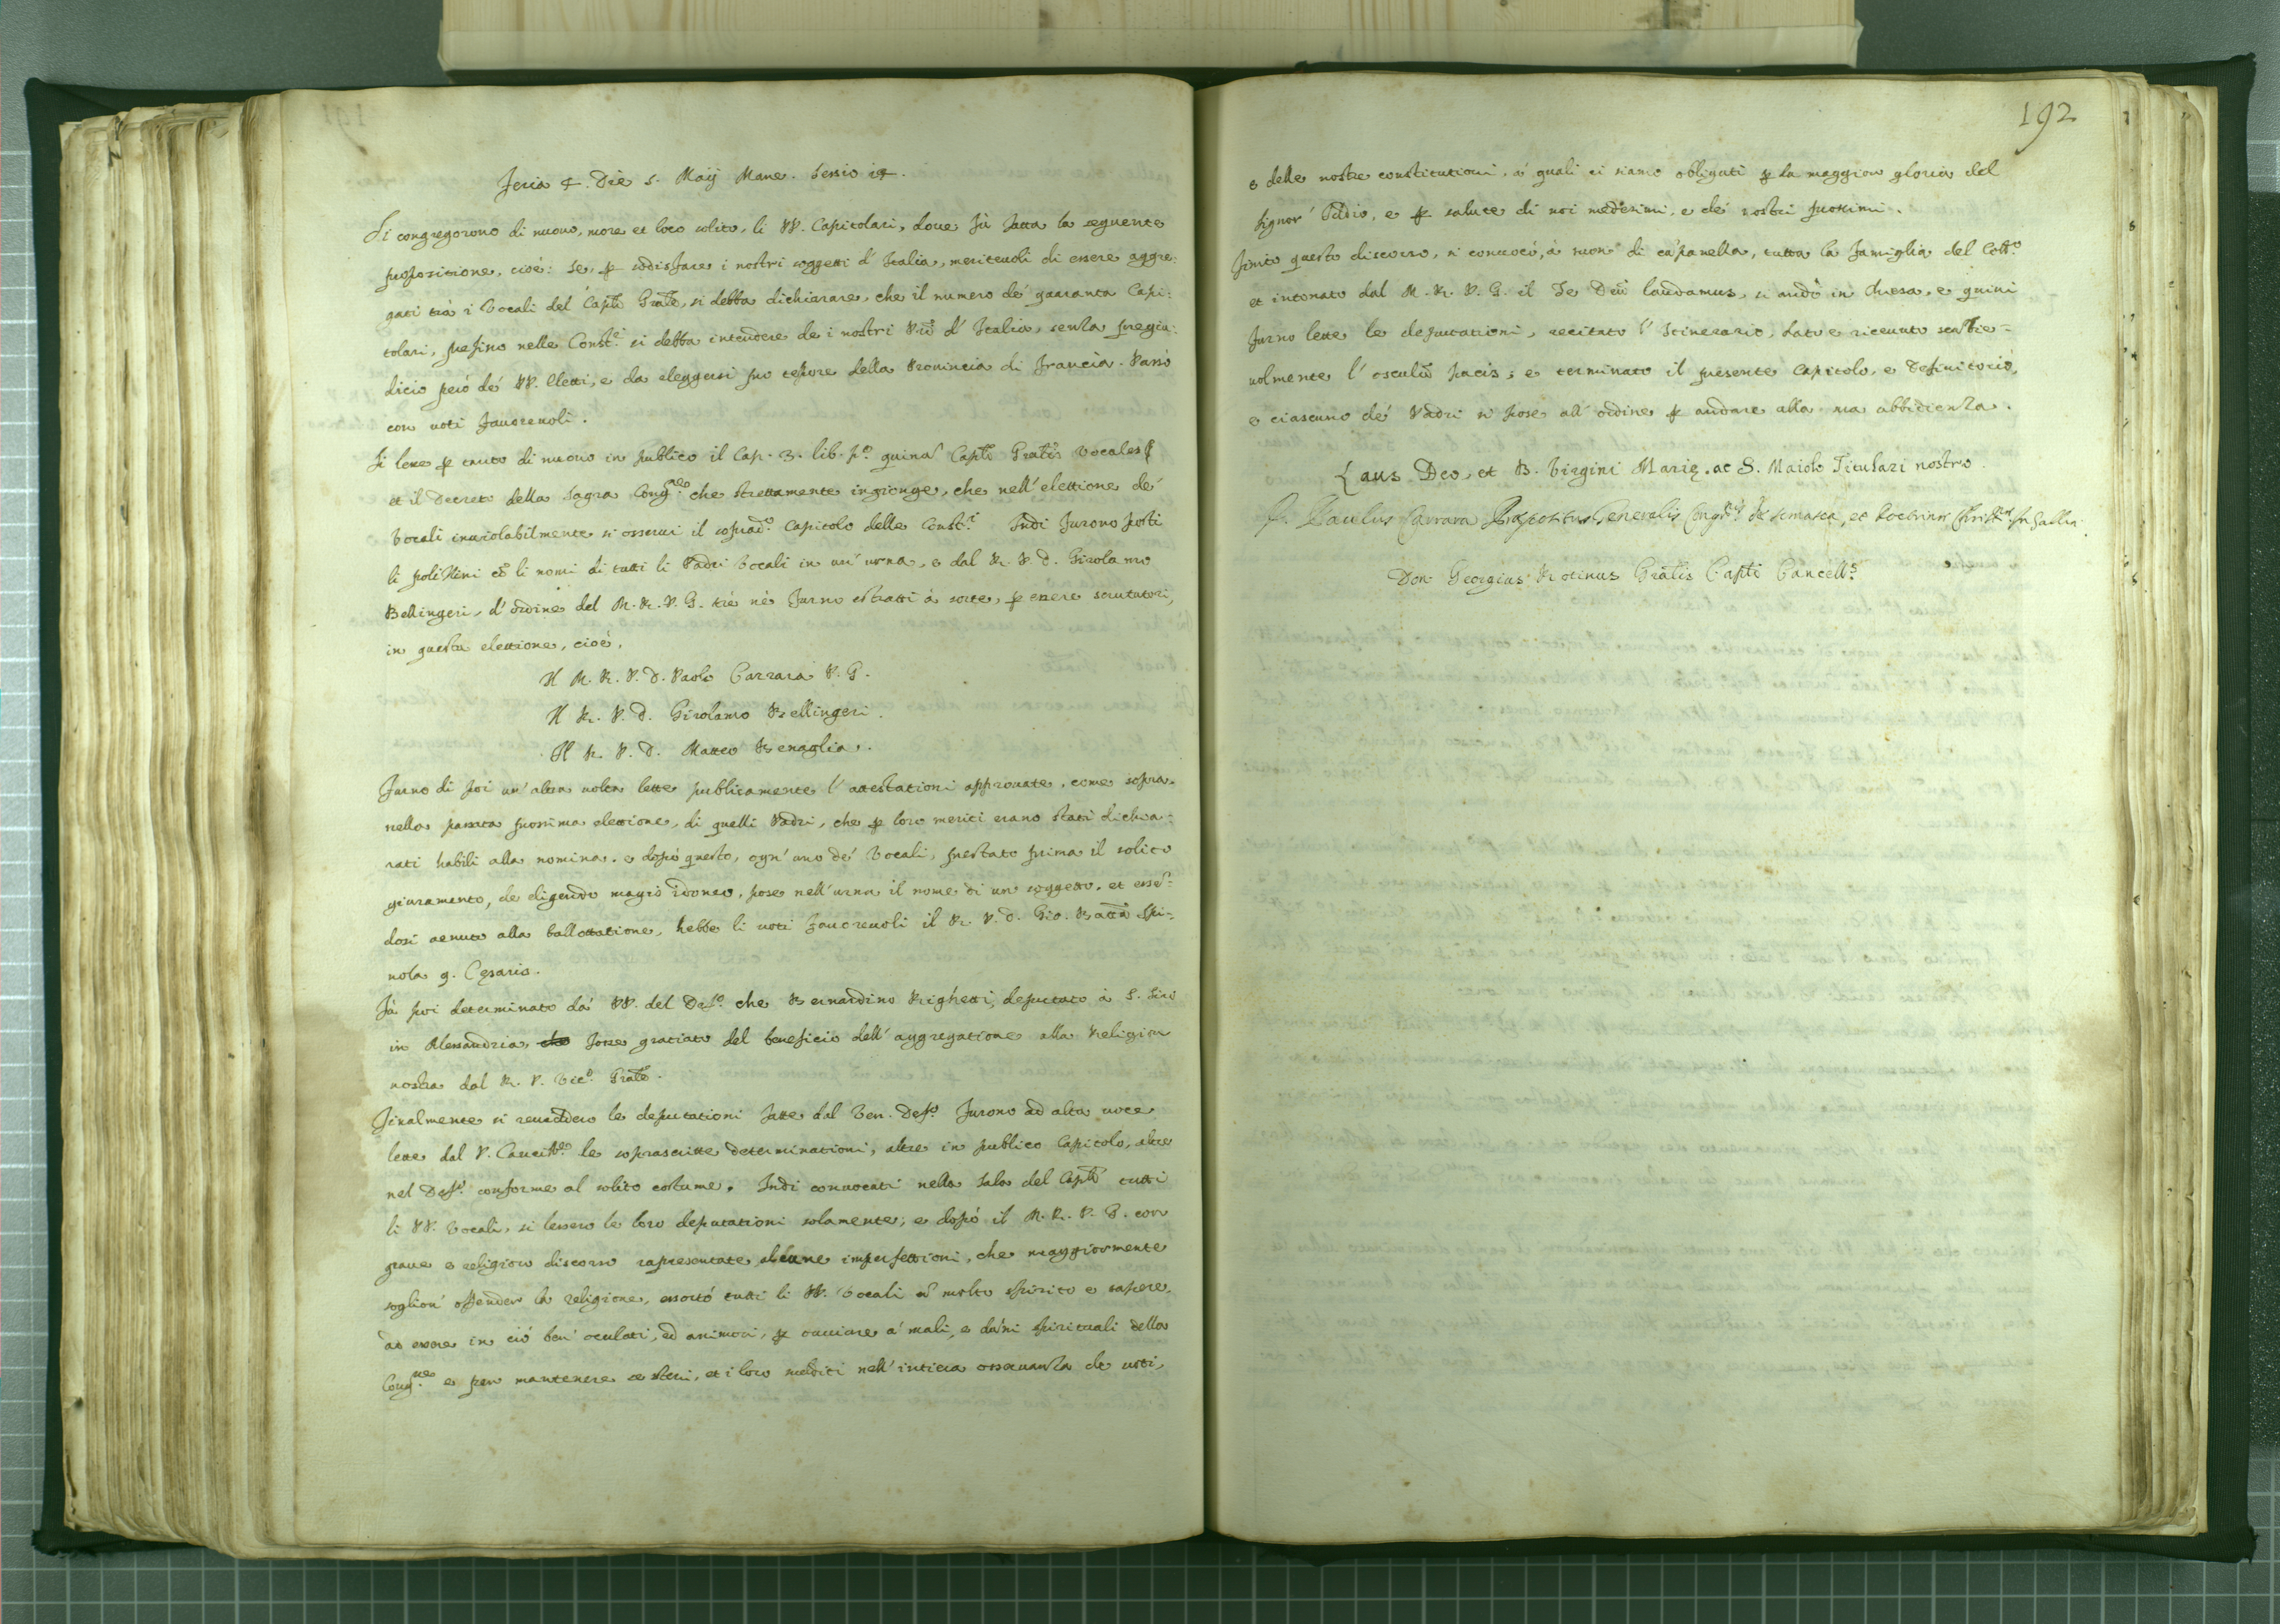 Feria 4. Die 5. Maij Mane. Sessio 14.
Si congregorono di nuouo, more et loco solito, li PP. Capitolari, doue fù fatta la seguente
propositione, cioè: se, p sodisfare i nostri soggetti d'Italia, meriteuoli di essere aggre:
gati trà i Vocali del Capło Gnałe, si debba dichiarare, che il numero dè quaranta Capi:
tolari, prefisso nelle Const.i si debba intendere de i nostri d'Italia, senza pregiu:
dicio però dè PP. eletti, e da eleggersi pro tempore della Prouincia di Francia. Passò
con uoti fauoreuoli.
Si lesse p tanto di nuouo in publico il Cap. 3. lib. p.o quinam Capłi Gnałis Vocales
et il Decreto della Sagra Cong.ne che strettamente ingionge, che nell'elettione dè
Vocali inuiolabilmente si osserui il soprad.o Capitolo delle Const.i Indi furono posti
li polizini co li nomi di tutti li Padri Vocali in un'urna, e dal R. P. D. Girolamo
Bellingeri, d'ordine del M. R. P. G. trè nè furno estratti à sorte, p essere scrutatori,
in questa elettione, cioè.
Il M. R. P. D. Paolo Carrara P. G.
Il R. P. D. Girolamo Bellingeri.
Il R. P. D. Matteo Benaglia.
Furno di poi un'altra uolta lette publicamente l'attestationi approuate, come sopra,
nella passata prossima elettione, di quelli Padri, che p loro meriti erano stati dichia:
rati habili alla nomina. e dopò questo, ogn'uno dè Vocali, prestato prima il solito
giuramento, de eligendo magis idoneo, pose nell'urna il nome di un soggetto. et essē:
dosi uenuto alla ballottatione, hebbe li uoti fauoreuoli il R. P. D. Gio. Batta Spi:
nola q. Cęsaris.
Fù poi determinato da' PP. del Def.o che Bernardino Righetti, deputato à S. Siro
in Alessandria, che fosse gratiato del beneficio dell'aggregatione alla Religion
nostra dal R. P. Vic.o Gnałe.
Finalmente si reuiddero le deputationi fatte dal Ven. Def.o Furono ad alta uoce
lette dal P. Cancell.re le soprascritte determinationi, altre in publico Capitolo, altre
nel Def.o conforme al solito costume. Indi conuocati nella Sala del Capło tutti
li PP. Vocali, si lessero le loro deputationi solamente; e dopò il M. R. P. G. con
graue e religioso discorso rapresentate alcune imperfettioni, che maggiormente
soglion' offender la religione, essortò tutti li PP. Vocali cō molto spirito e sapere,
ad essere in ciò ben' oculati, ed animosi, p ouuiare a' mali, e dāni spirituali della
Cong.ne e per mantenere se stessi, et i loro sudditi nell'intiera osseruanza de uoti,
192
e delle nostre constitutioni, à quali ci siamo obligati p la maggior gloria del
Signor' Iddio, e p salute di noi medesimi, e dè nostri prossimi.
Finito questo discorso, si conuocò, à suon' di cāpanella, tutta la famiglia del Coll.o
et intonato dal M. R. P. G. il Te Deū laudamus, si andò in chiesa, e quiui
furno lette le deputationi, recitato l'Itinerario, dato e riceuuto scābie=
uolmente l'osculū pacis; e terminato il presente Capitolo, e Definitorio,
e ciascuno dè Padri si pose all'ordine p andare alla sua obbidienza.
Laus Deo, et B. Virgini Marię. ac S. Maiolo Titulari nostro.
D. Paulus Carrara Prepositus Generalis Congr.nis de Somasca, et Doctrinę Christ.nę in Gallia.
Don Georgius Rotinus Gnałis Capłi Cancell.s